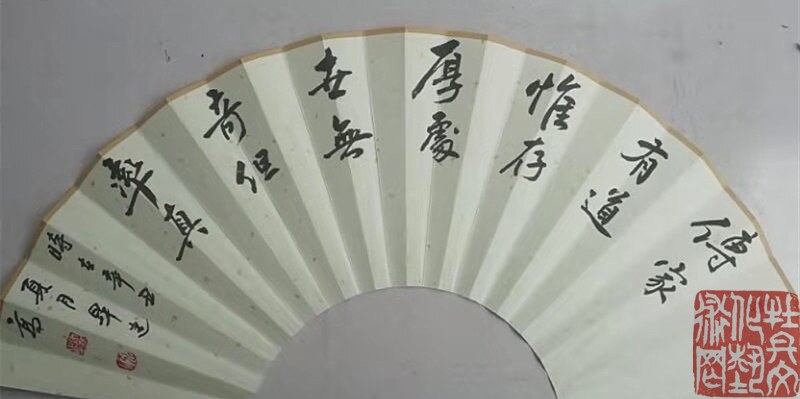 傳家
有道
惟存
厚處
世無
奇但
率真
時在辛丑
夏月